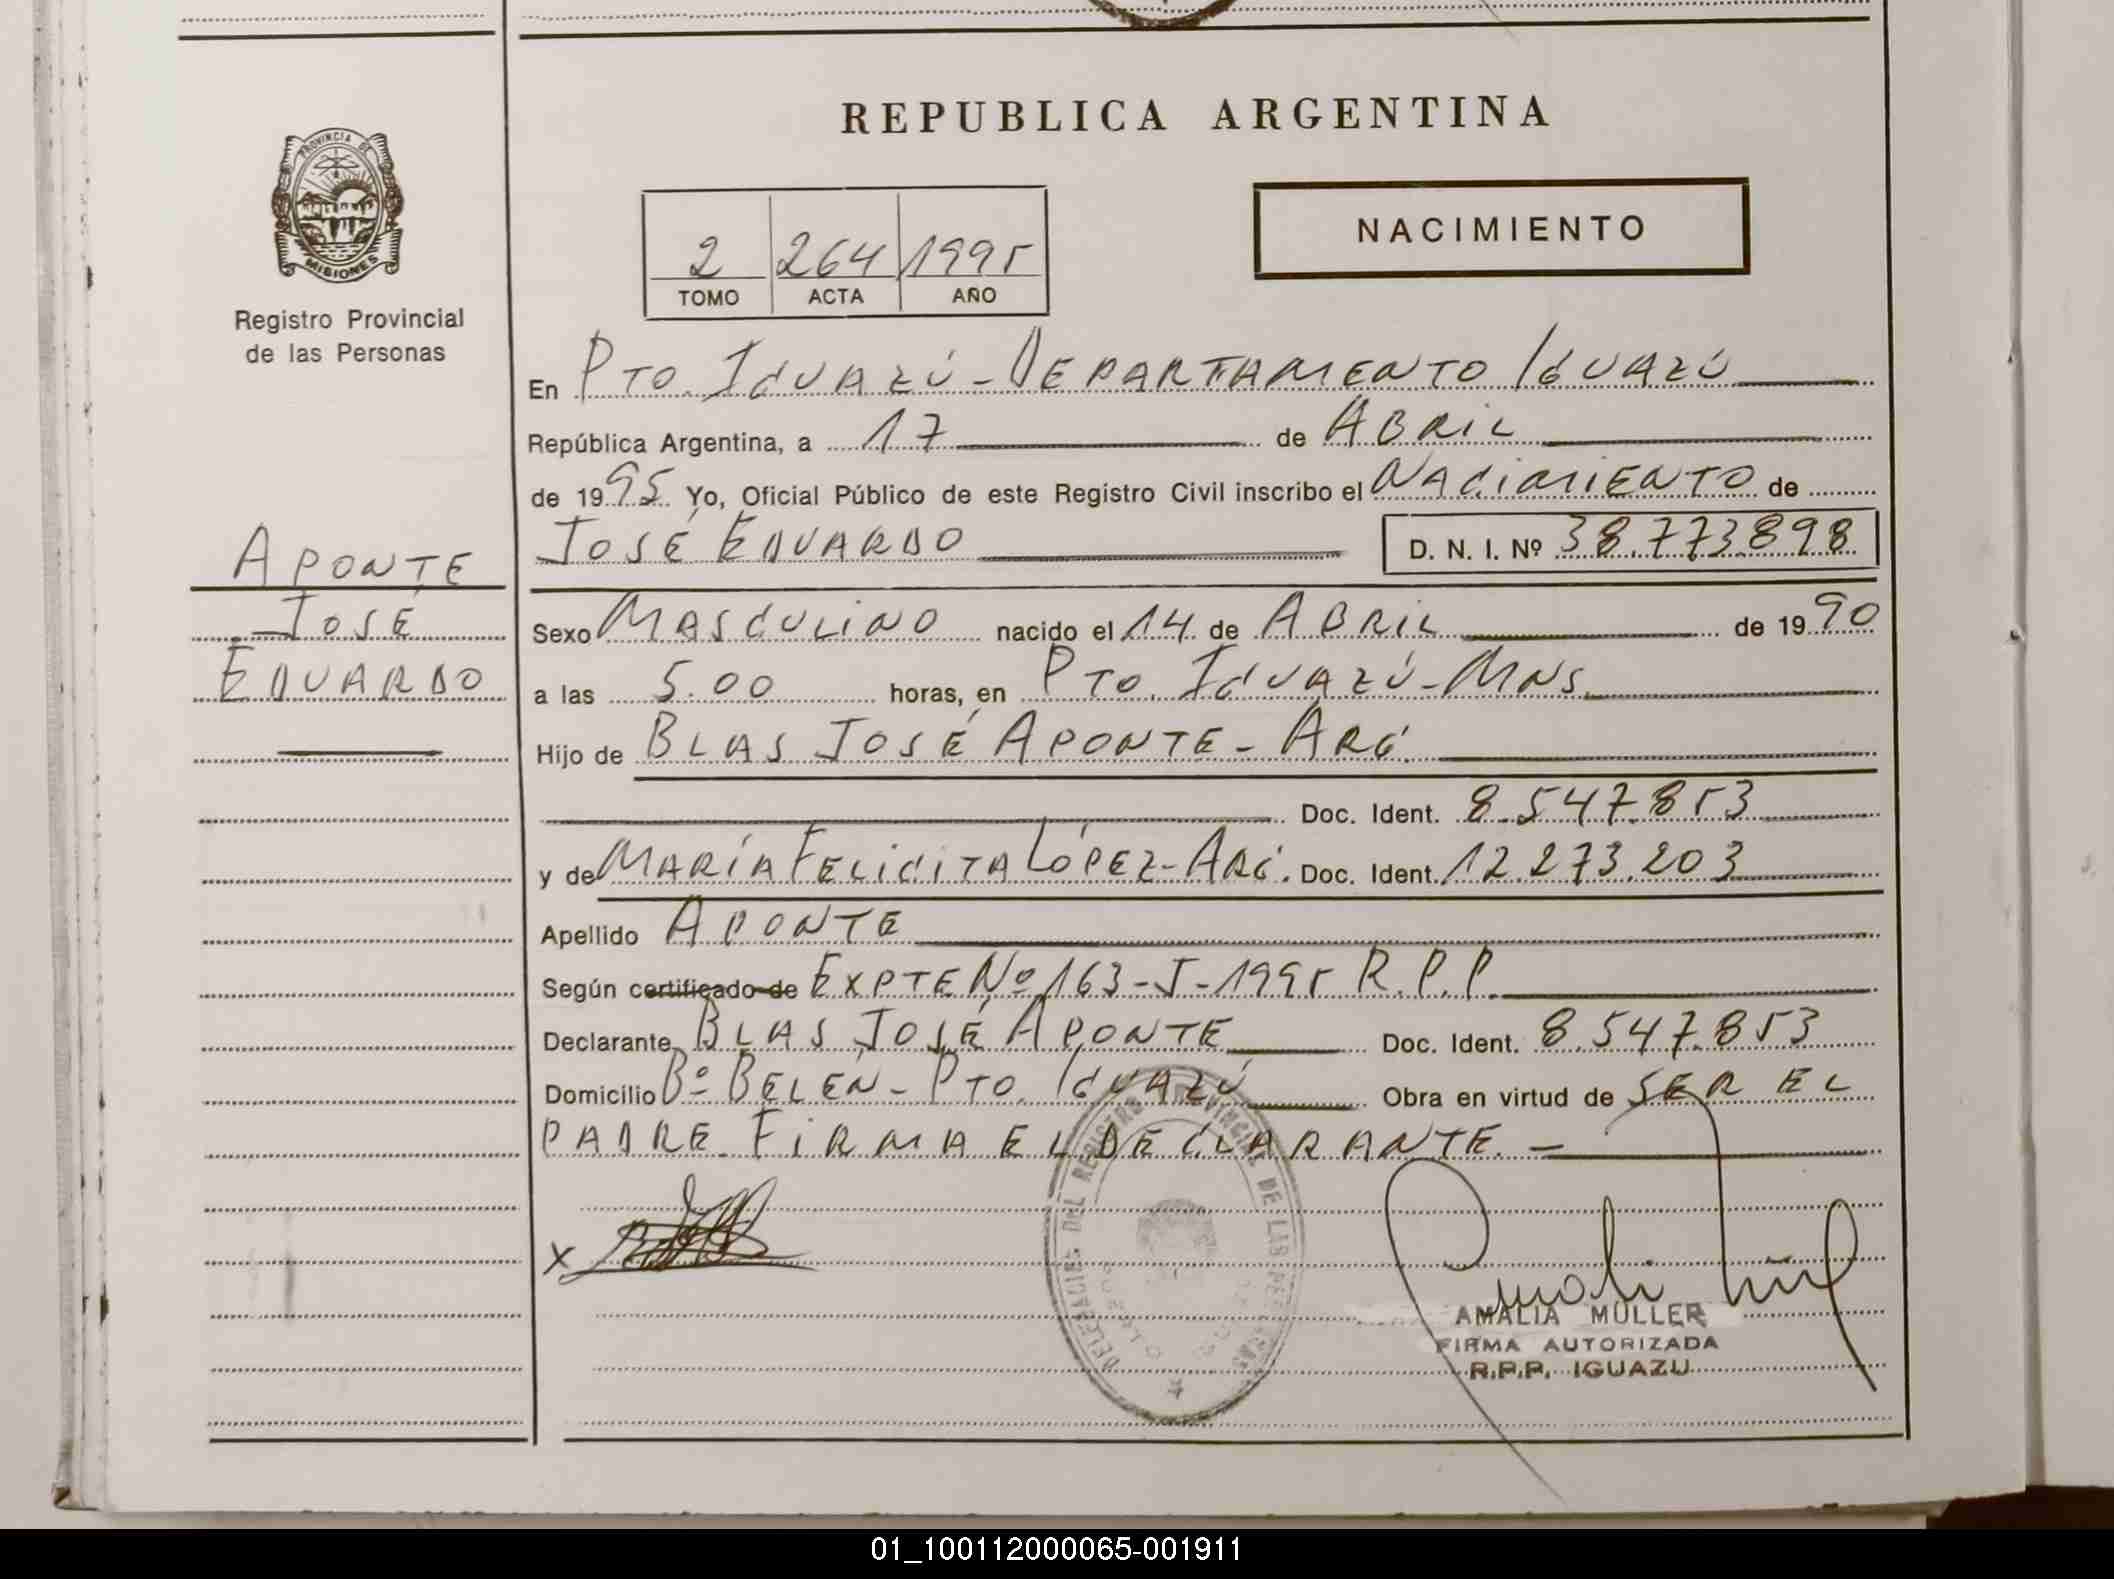 REPUBLICA ARGENTINA
PROVINCIA DE
MISIONES
Registro Provincial
de las Personas
NACIMIENTO
2 264 1995
TOMO ACTA AÑO
En Pto. Iguazú - Departamento Iguazú
República Argentina, a 17 de Abril
de 1995 Yo, Oficial Público de este Registro Civil inscribo el Nacimiento de
José Eduardo D. N. I. Nº 38.773.898
Aponte
José
Eduardo
Sexo Masculino nacido el 14 de Abril de 1990
a las 5.00 horas, en Pto. Iguazú - Mns.
Hijo de Blas José Aponte - Arg.
Doc. Ident. 8.547.853
y de María Felicita López - Arg. Doc. Ident. 12.273.203
Apellido Aponte
Según certificado de Expte Nº 163-J-1995 R.P.P.
Declarante Blas José Aponte Doc. Ident. 8.547.853
Domicilio Bº Belén - Pto. Iguazú Obra en virtud de ser el
padre. Firma el declarante. -
X
DELEGACION DEL REGISTRO PROVINCIAL DE LAS PERSONAS
AMALIA MULLER
FIRMA AUTORIZADA
R.P.P. IGUAZU
01_100112000065-001911